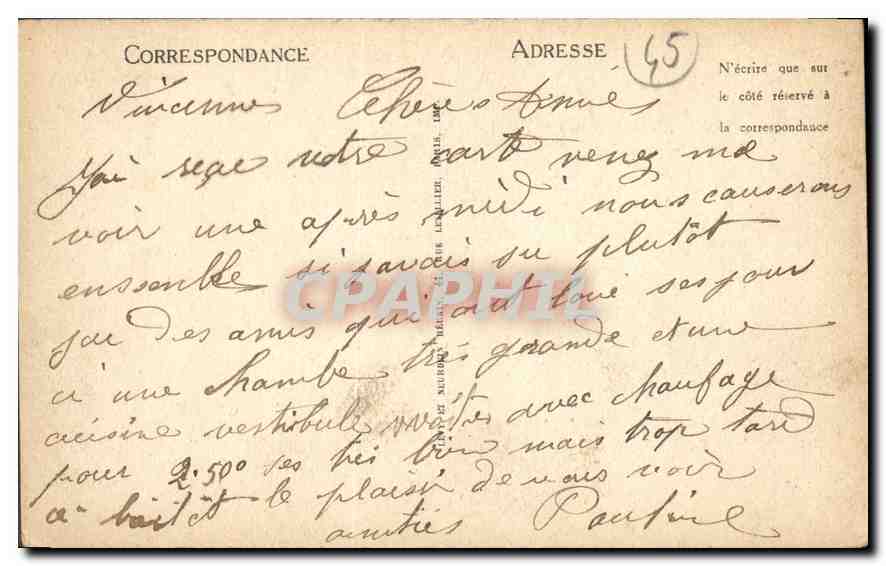 CORRESPONDANCE
ADRESSE
45
N'écrire que sur
le côté réservé à
la correspondance
Vincennes Chères Amies
J'ai reçue votre carte venez me
voir une après midi nous causerons
ensemble si javais su plutôt
jai des amis qui ont loué ses jour
ci une chambe très grande et une
cuisine vestibule avec chaufage
pour 2.50° ses très bien mais trop tard
a bientot le plaisir de vous voir
amitiés Pauline
LEVY ET NEURDEIN RÉUNIS, 44, RUE LETELLIER, PARIS, IMP.
CPAPHIL